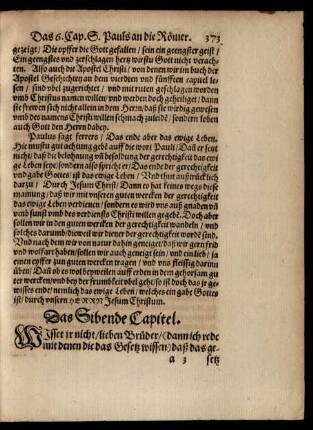 Das 6. Cap. S. Pauls an die Römer. 373
gezeigt / Die opffer die Gott gefallen / sein ein geengster geist /
Ein geengstes vnd zerschlagen hertz wirstu Gott nicht verach-
ten. Also auch die Apostel Christi / von denen wir im buch der
Apostel Geschichten an dem vierdten vnd fünfften capitel le-
sen / sind vbel zugerichtet / vnd mit ruten geschlagen worden
vmb Christus namen willen / vnd werden doch geheiliget / dann
sie frewen sich nicht allein in dem Herrn / daß sie wirdig gewesen
vmb des namens Christi willen schmach zuleidē / sondern loben
auch Gott den Herrn dabey.
Paulus sagt ferrers / Das ende aber das ewige Leben.
Hie mustu gut achtung gebē auff die wort Pauli / Daß er seyt
nicht / daß die belohnung vñ besoldung der gerechtigkeit das ewi
ge Leben seye / sondern also spricht er / Das ende der gerechtigkeit
vnd gabe Gottes / ist das ewige Leben / Vnd thut außtrücklich
darzu / Durch Jesum Christ / Dann es hat keines wegs diese
mainung / daß wir mit vnseren guten wercken der gerechtigkeit
das ewig Leben verdienen / sondern es wird vns auß gnaden vñ
vmb sunst vmb des verdiensts Christi willen gegebē. Doch aber
sollen wir in den guten wercken der gerechtigkeit wandeln / vnd
solches darumb / dieweil wir diener der gerechtigkeit wordē sind.
Vnd nach dem wir von natur dahin geneiget / daß wir gern frid
vnd wolfart haben / sollen wir auch geneigt sein / vnd ein lieb / ja
einen eyffer zun guten wercken tragen / vnd vns fleissig darinn
üben / Daß ob es wol beyweilen auff erden in dem gehorsam gu
ter wercken / vnd bey der frumbkeit vbel geht / so ist doch das je ge-
wisses ende / nemlich das ewige Leben / welches ein gabe Gottes
ist / durch vnsern HERRN Jesum Christum.
Das Sibende Capitel.
WIsset jr nicht / lieben Brüder / (dann ich rede
mit denen die das Gesetz wissen) daß das ge-
a 3 setz